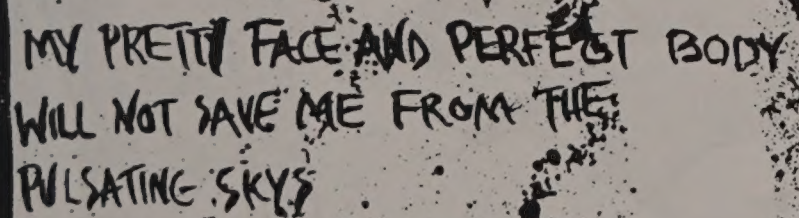 MY PRETTY FACE AND PERFECT BODY
WILL NOT SAVE ME FROM THE
PULSATING SKYS